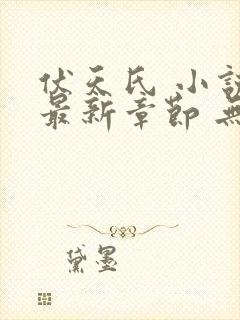 伏天氏 小說
最新章節 無
黛墨